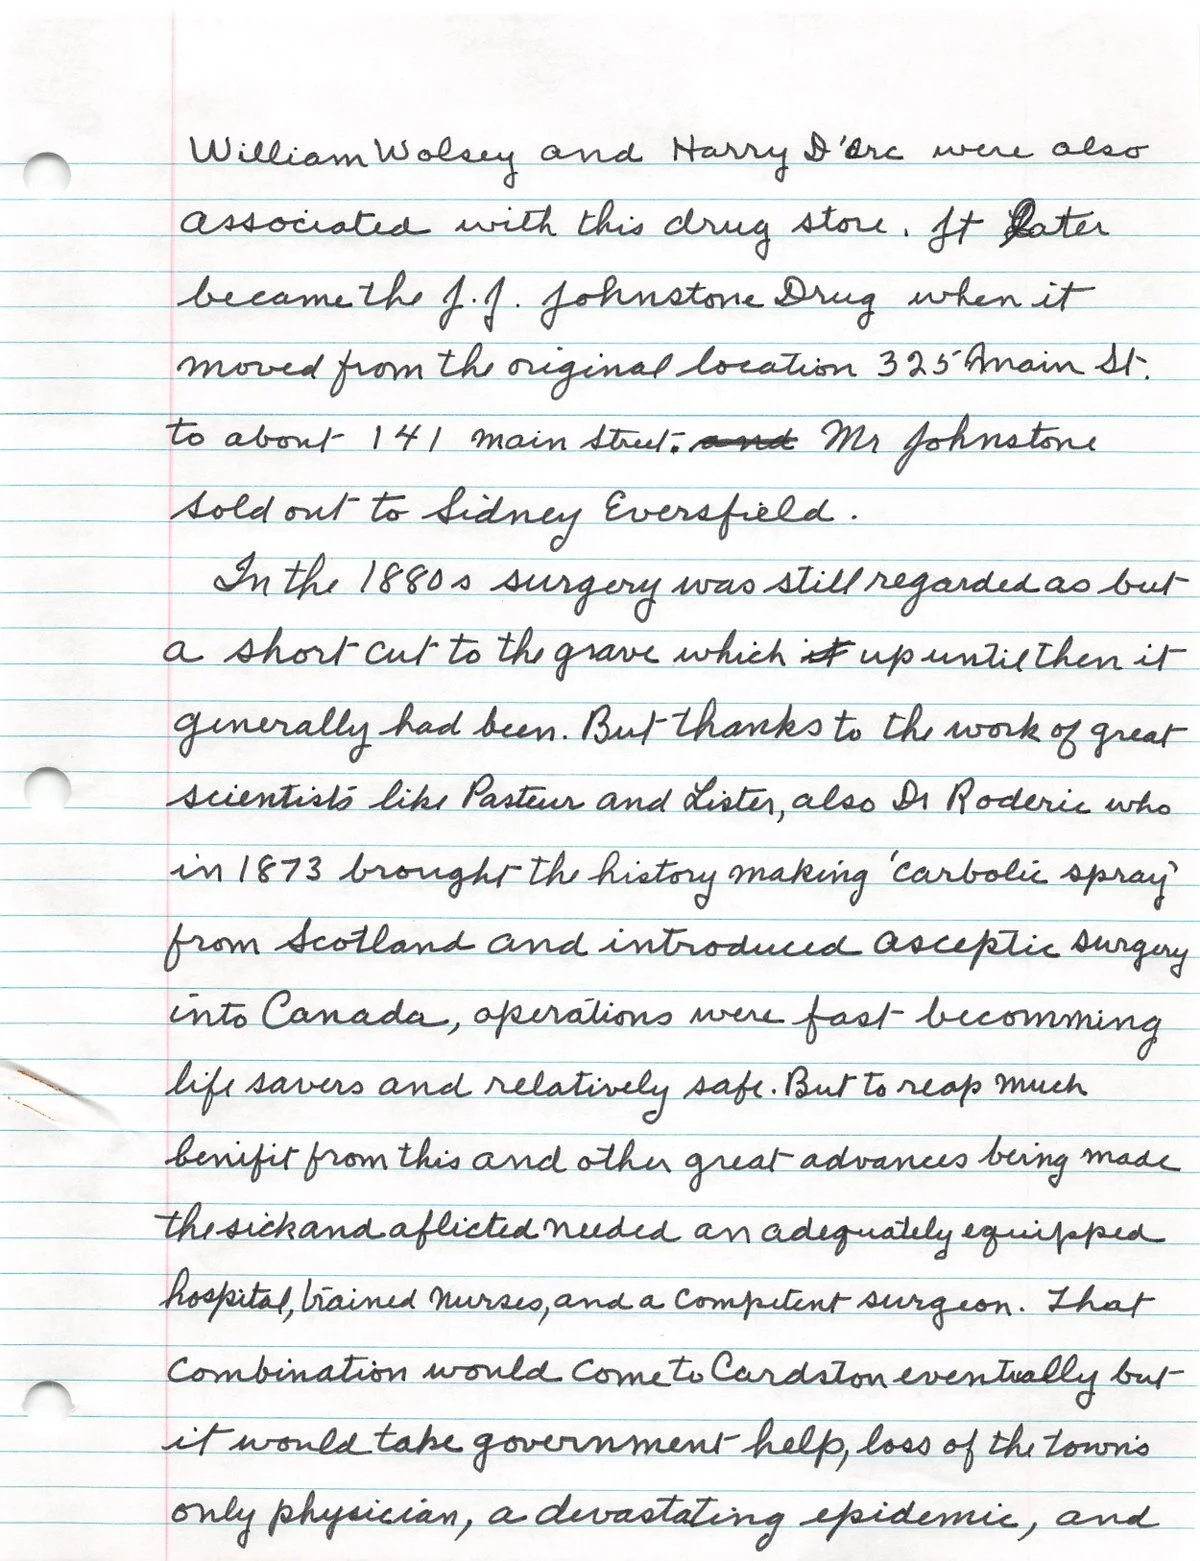 William Wolsey and Harry D'Arc were also
associated with this drug store. It Later
became the J.J. Johnstone Drug when it
moved from the original location 325 Main St.
to about 141 main street. and Mr Johnstone
sold out to Sidney Eversfield.
In the 1880s surgery was still regarded as but
a short cut to the grave which it up until then it
generally had been. But thanks to the work of great
scientists like Pasteur and Lister, also Dr Roderic who
in 1873 brought the history making 'carbolic spray'
from Scotland and introduced asceptic surgery
into Canada, operations were fast becomming
life savers and relatively safe. But to reap much
benifit from this and other great advances being made
the sick and aflicted needed an adequately equipped
hospital, trained nurses, and a competent surgeon. That
combination would come to Cardston eventually but
it would take government help, loss of the town's
only physician, a devastating epidemic, and